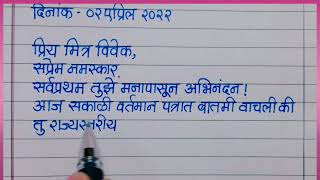 दिनांक - ०२एप्रिल २०२२
प्रिय मित्र विवेक,
सप्रेम नमस्कार.
सर्वप्रथम तुझे मनापासून अभिनंदन!
आज सकाळी वर्तमान पत्रात बातमी वाचली की
तु राज्यस्तरीय